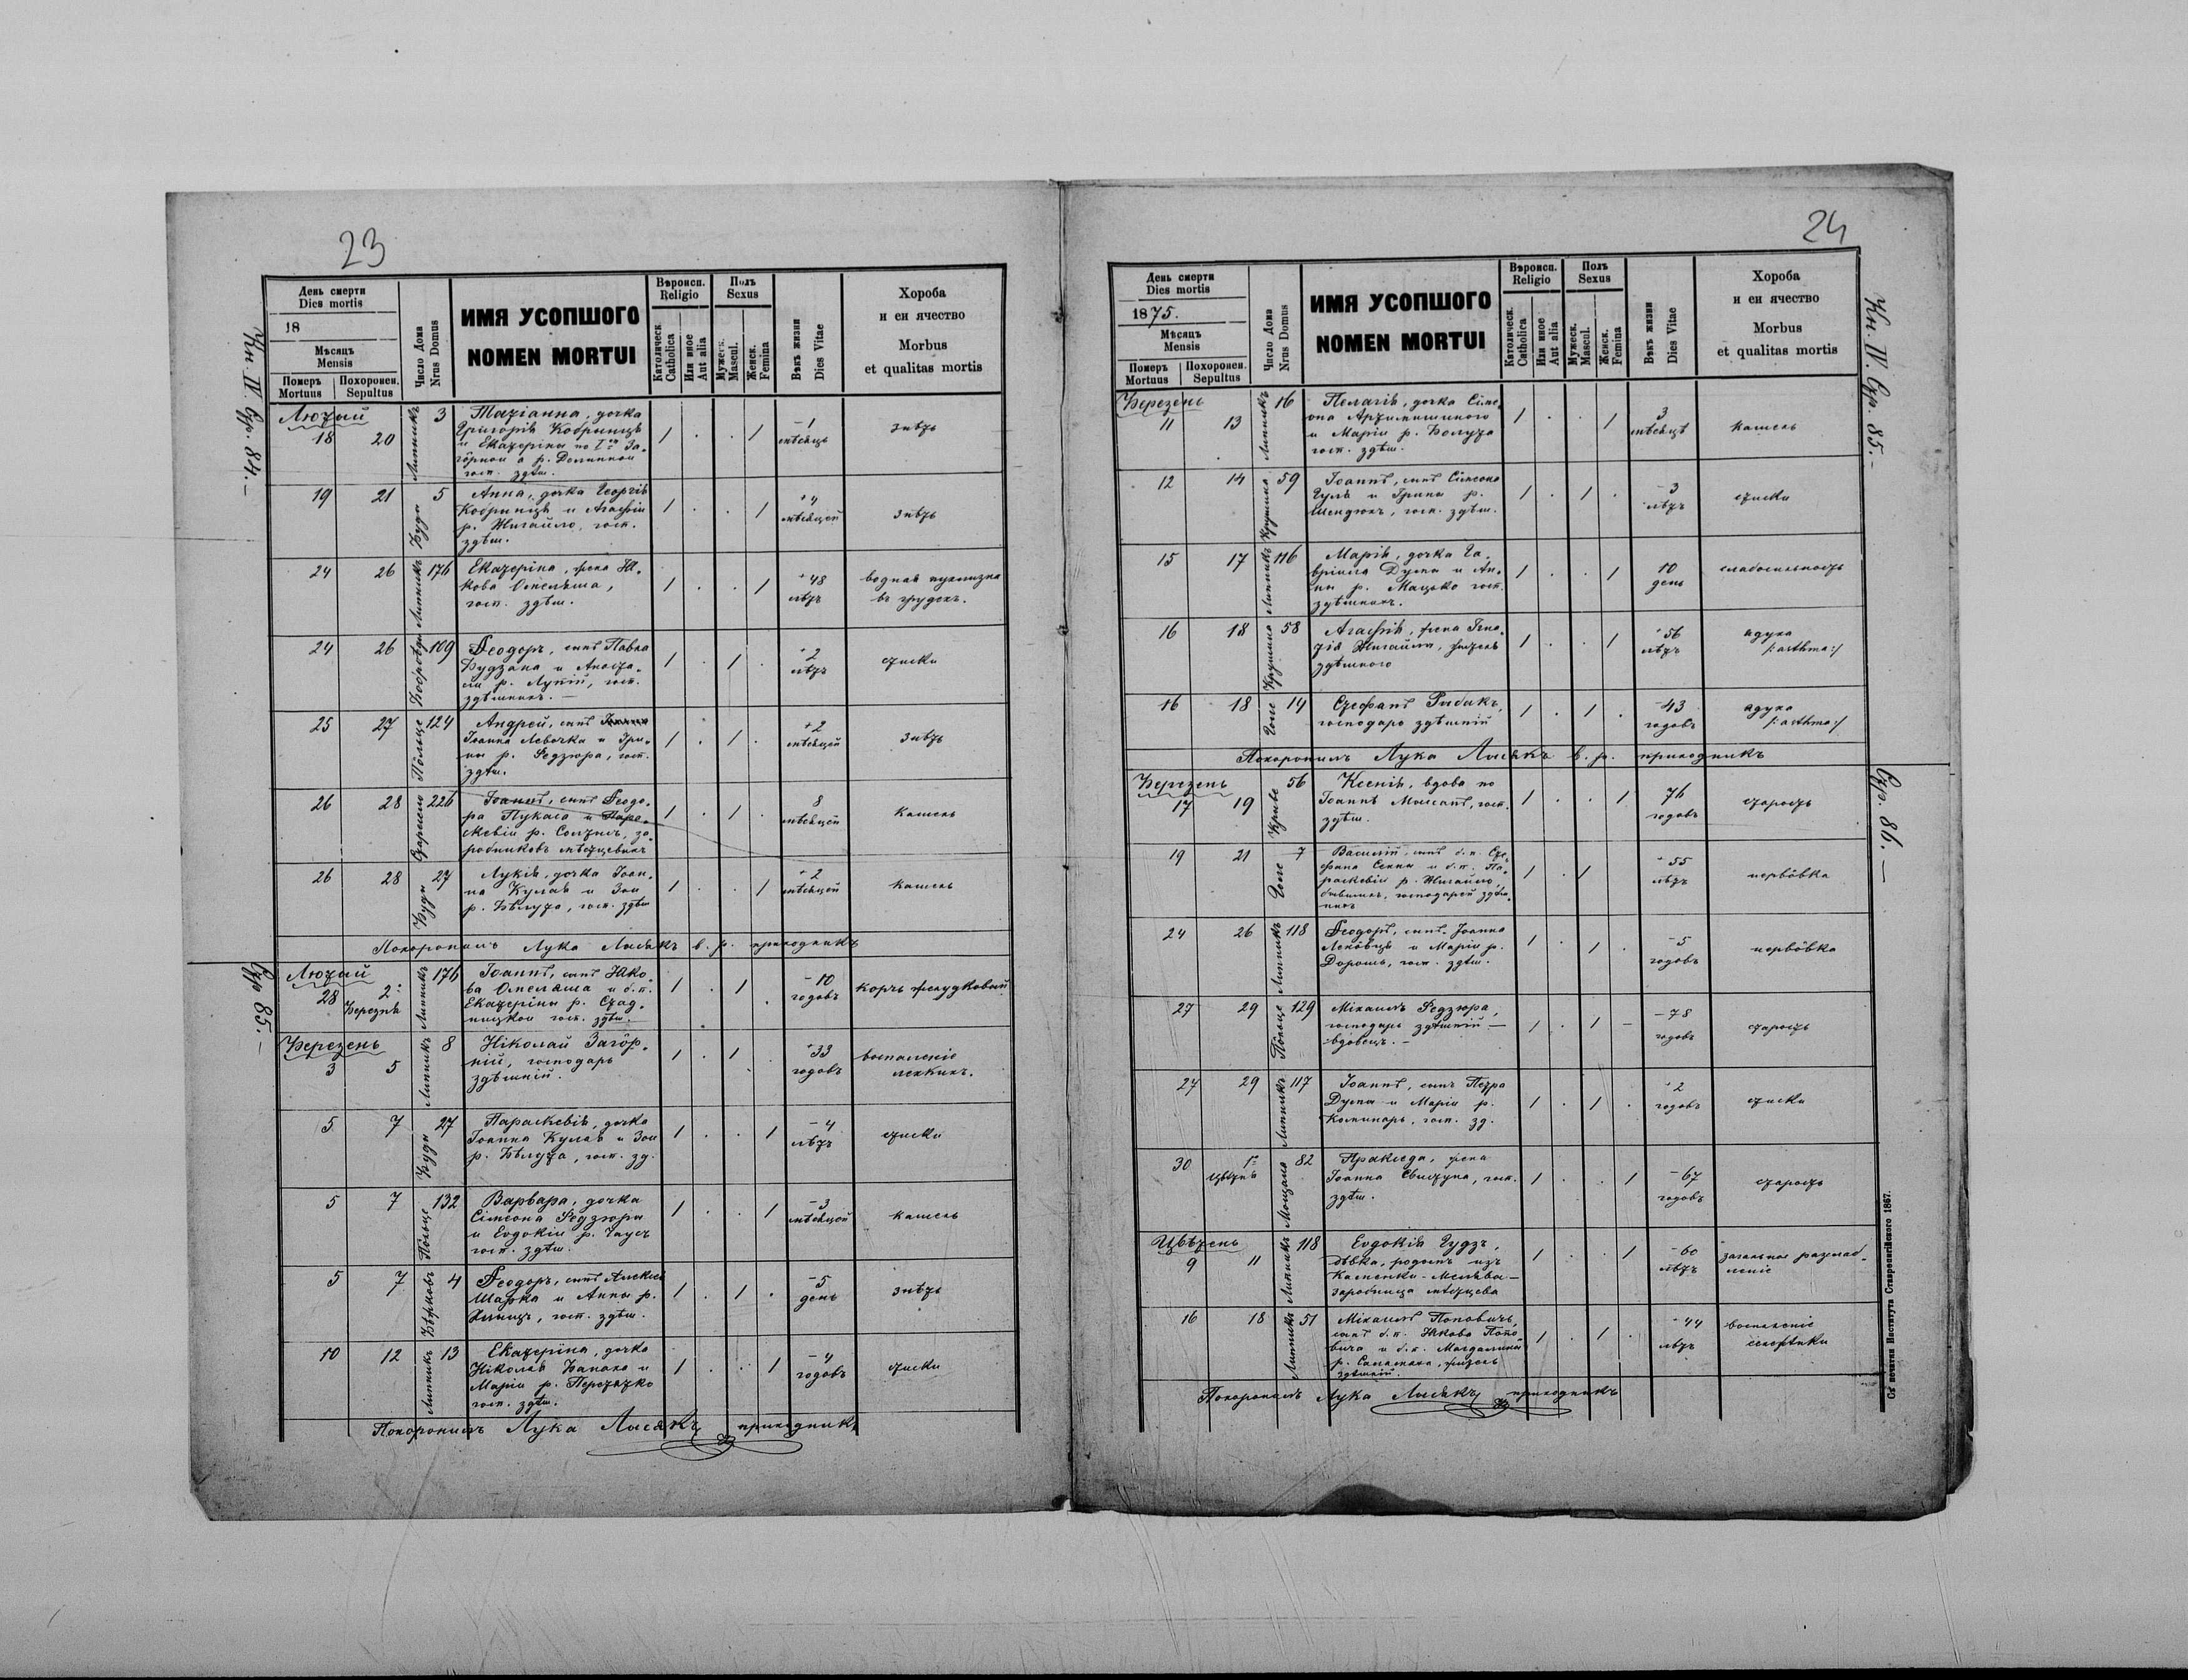 23
Кн. IV. Стр. 84. –
Стр. 85. –
День смерти
Dies mortis
18
Мѣсяцъ
Mensis
Померъ
Mortuus
Похоронен.
Sepultus
Число Дома
Nrus Domus
ИМЯ УСОПШОГО
NOMEN MORTUI
Вѣроисп.
Religio
Католическ.
Catholica
Или иное
Aut alia
Полъ
Sexus
Мужеск.
Mascul.
Женск.
Femina
Вѣкъ жизни
Dies Vitae
Хороба
и еи ячество
Morbus
et qualitas mortis
Лютый
18 20 Липникъ 3 Татіанна, дочка
Григорія Кобринцѣ
и Екатерины по Iмъ За-
гôрной а р. Долинной
госп. здѣш.
1 . . 1 1 мѣсяць
19 21 Буда 5 Анна, дочка Георгія
Кобринцѣ и Агафіи
р. Жигайло, госп.
здѣш.
1 . . 1 4 мѣсяцей
24 26 Липникъ 176 Екатерина, жена Я-
кова Омеляша,
госп. здѣш.
1 . . 1 48 лѣтъ водная пухлизна
въ грудехъ.
24 26 109 Ѳеодоръ, сынъ Павла
Будзана и Анаста-
сіи р. Лупій, госп.
здѣшнихъ. –
1 . 1 . 2 лѣтъ стиски
25 27 Пôльце 124 Андрей, сынъ
Іоанна Левочка и Ири-
ны р. Федзюра, госп.
здѣш.
1 . 1 . 2 мѣсяцей
26 28 Старсело 226 Іоаннъ, сынъ Ѳеодо-
ра Пукаса и Пара-
скевіи р. Солтысъ, за-
робниковъ мѣстцевыхъ
1 . 1 . 8 мѣсяцей кашель
26 28 Буды 27 Лукія, дочка Іоан-
на Кулая и Зои
р. Бѣлута, госп. здѣш
1 . . 1 2 мѣсяцей кашель
Похоронилъ Лука Лисякъ в. р. приходникъ
Лютый
28 2: Березня Липникъ 176 Іоаннъ, сынъ Яко-
ва Омеляша и б.п.
Екатерины р. Стад-
ницкои госп. здѣш.
1 . 1 . 10 годовъ корчъ желудковый
Березень
3 5 Липникъ 8 Николай Загôр-
ній, господарь
здѣшній.
1 . 1 . 33 годовъ воспаленіе
легкихъ.
5 7 Буды 27 Параскевія, дочка
Іоанна Кулая и Зои
р. Бѣлута, госп. зд.
1 . . 1 4 лѣтъ стиски
5 7 Пôльце 132 Варвара, дочка
Сімеона Федзюры
и Евдокіи р. Гаусъ
госп. здѣш.
1 . . 1 3 мѣсяцей кашель
5 7 4 Ѳеодоръ, сынъ Алексія
Шарка и Анны р.
госп. здѣш.
1 . 1 . 5 день
10 12 Липникъ 13 Екатерина, дочка
Николая Банаха и
Маріи р. Перетятко
госп. здѣш.
1 . . 1 4 годовъ стиски
Похоронилъ Лука Лисякъ приходникъ
24
Кн. IV. Стр. 85. –
Стр. 86. –
День смерти
Dies mortis
1875.
Мѣсяцъ
Mensis
Померъ
Mortuus
Похоронен.
Sepultus
Число Дома
Nrus Domus
ИМЯ УСОПШОГО
NOMEN MORTUI
Вѣроисп.
Religio
Католическ.
Catholica
Или иное
Aut alia
Полъ
Sexus
Мужеск.
Mascul.
Женск.
Femina
Вѣкъ жизни
Dies Vitae
Хороба
и еи ячество
Morbus
et qualitas mortis
Березень
11 13 Липникъ 16 Пелагія, дочка Сіме-
она
и Маріи р. Болута
госп. здѣш.
1 . . 1 3 мѣсяцѣ кашель
12 14 Крушина 59 Іоаннъ, сынъ Сімеона
Гуль и Ирины р.
Шендюкъ, госп. здѣш.
1 . 1 . 3 лѣтъ стиски
15 17 Липникъ 116 Марія, дочка Га-
вріила Дуспы и Ан-
ны р. Мацько госп.
здѣшнихъ.
1 . . 1 10 день слабосильность
16 18 Крушина 58 Агафія, жена Игна-
тія Жигайла, житель
здѣшного
1 . . 1 56 лѣтъ адуха
/:asthma:/
16 18 Голе 14 Стефанъ Рибакъ,
господарь здѣшній
1 . 1 . 43 годовъ адуха
/:asthma:/
Похоронилъ Лука Лисякъ в. р. приходникъ
Березень
17 19 Криве 56 Ксенія, вдова по
Іоаннѣ госп.
здѣш.
1 . . 1 76 годовъ старость
19 21 Голе 7 Василій, сынъ б.п. Сте-
фана Сенки и б.п. Па-
раскевіи р. Жигайло,
бывшихъ господарей здѣш-
нихъ
1 . 1 55 лѣтъ нервôвка
24 26 Липникъ 118 Ѳеодоръ, сынъ Іоанна
и Маріи р.
Дорошъ, госп. здѣш.
1 . 1 . 5 годовъ нервôвка
27 29 Пôльце 129 Міхаилъ Федзюра,
господарь здѣшній –
вдовецъ. –
1 . 1 – 78 годовъ старость
27 29 Липникъ 117 Іоаннъ, сынъ Петра
Дуспа и Маріи р.
Коминарь, госп. зд.
1 . 1 . 2 годовъ стиски
30 1: Цвѣтня Мощана 82 Пракседа, жена
Іоанна Свистуна, госп.
здѣш.
1 . . 1 67 годовъ старость
Цвѣтень
9 11 Липникъ 118 Евдокія Гудзъ,
дѣвка, родомъ изъ
Каменки-
заробница мѣстцева
1 . . 1 60 лѣтъ загальное разслаб-
леніе
16 18 Липникъ 51 Міхаилъ Поповичъ,
сынъ б.п. Якова Попо-
вича и б.п. Магдалины
р. житель
здѣшній.
1 . 1 . 44 лѣтъ воспаленіе
Похоронилъ Лука Лисякъ приходникъ
Съ печатни Института Ставропигійского 1867.